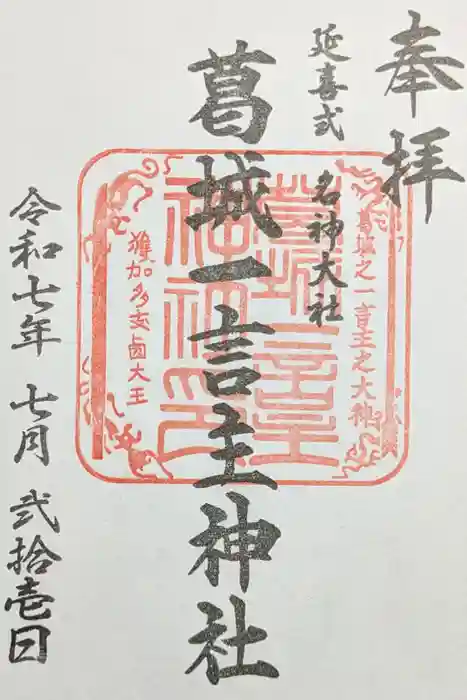 奉拝
延喜式
名神大社
葛城一言主神社
葛城之一言主之大神
獲加多支鹵大王
令和七年 七月 弐拾壱日